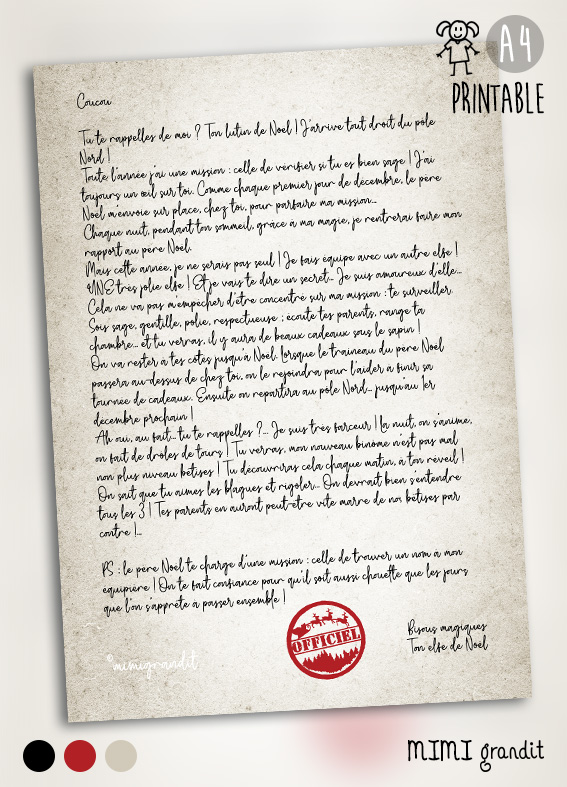 A4
PRINTABLE
Coucou
Tu te rappelles de moi ? Ton lutin de Noël ! J'arrive tout droit du pôle
Nord !
Toute l'année j'ai une mission : celle de vérifier si tu es bien sage ! J'ai
toujours un œil sur toi. Comme chaque premier jour de décembre, le père
Noël m'envoie sur place, chez toi, pour parfaire ma mission...
Chaque nuit, pendant ton sommeil, grâce à ma magie, je rentrerai faire mon
rapport au père Noël.
Mais cette année, je ne serais pas seul ! Je fais équipe avec un autre elfe !
UNE très jolie elfe ! Et je vais te dire un secret... Je suis amoureux d'elle...
Cela ne va pas m'empêcher d'être concentré sur ma mission : te surveiller.
Sois sage, gentille, polie, respectueuse ; écoute tes parents, range ta
chambre... et tu verras, il y aura de beaux cadeaux sous le sapin !
On va rester à tes côtés jusqu'à Noël. Lorsque le traineau du père Noël
passera au-dessus de chez toi, on le rejoindra pour l'aider à finir sa
tournée de cadeaux. Ensuite on repartira au pôle Nord... jusqu'au 1er
décembre prochain !
Ah oui, au fait... tu te rappelles ?... Je suis très farceur ! la nuit, on s'anime,
on fait de drôles de tours ! Tu verras, mon nouveau binôme n'est pas mal
non plus niveau bêtises ! Tu découvriras cela chaque matin, à ton réveil !
On sait que tu aimes les blagues et rigoler... On devrait bien s'entendre
tous les 3 ! Tes parents en auront peut-être vite marre de nos bêtises par
contre !...
PS : le père Noël te charge d'une mission : celle de trouver un nom à mon
équipière ! On te fait confiance pour qu'il soit aussi chouette que les jours
que l'on s'apprête à passer ensemble !
OFFICIEL
Bisous magiques
Ton elfe de Noël
©mimigrandit
MIMI grandit